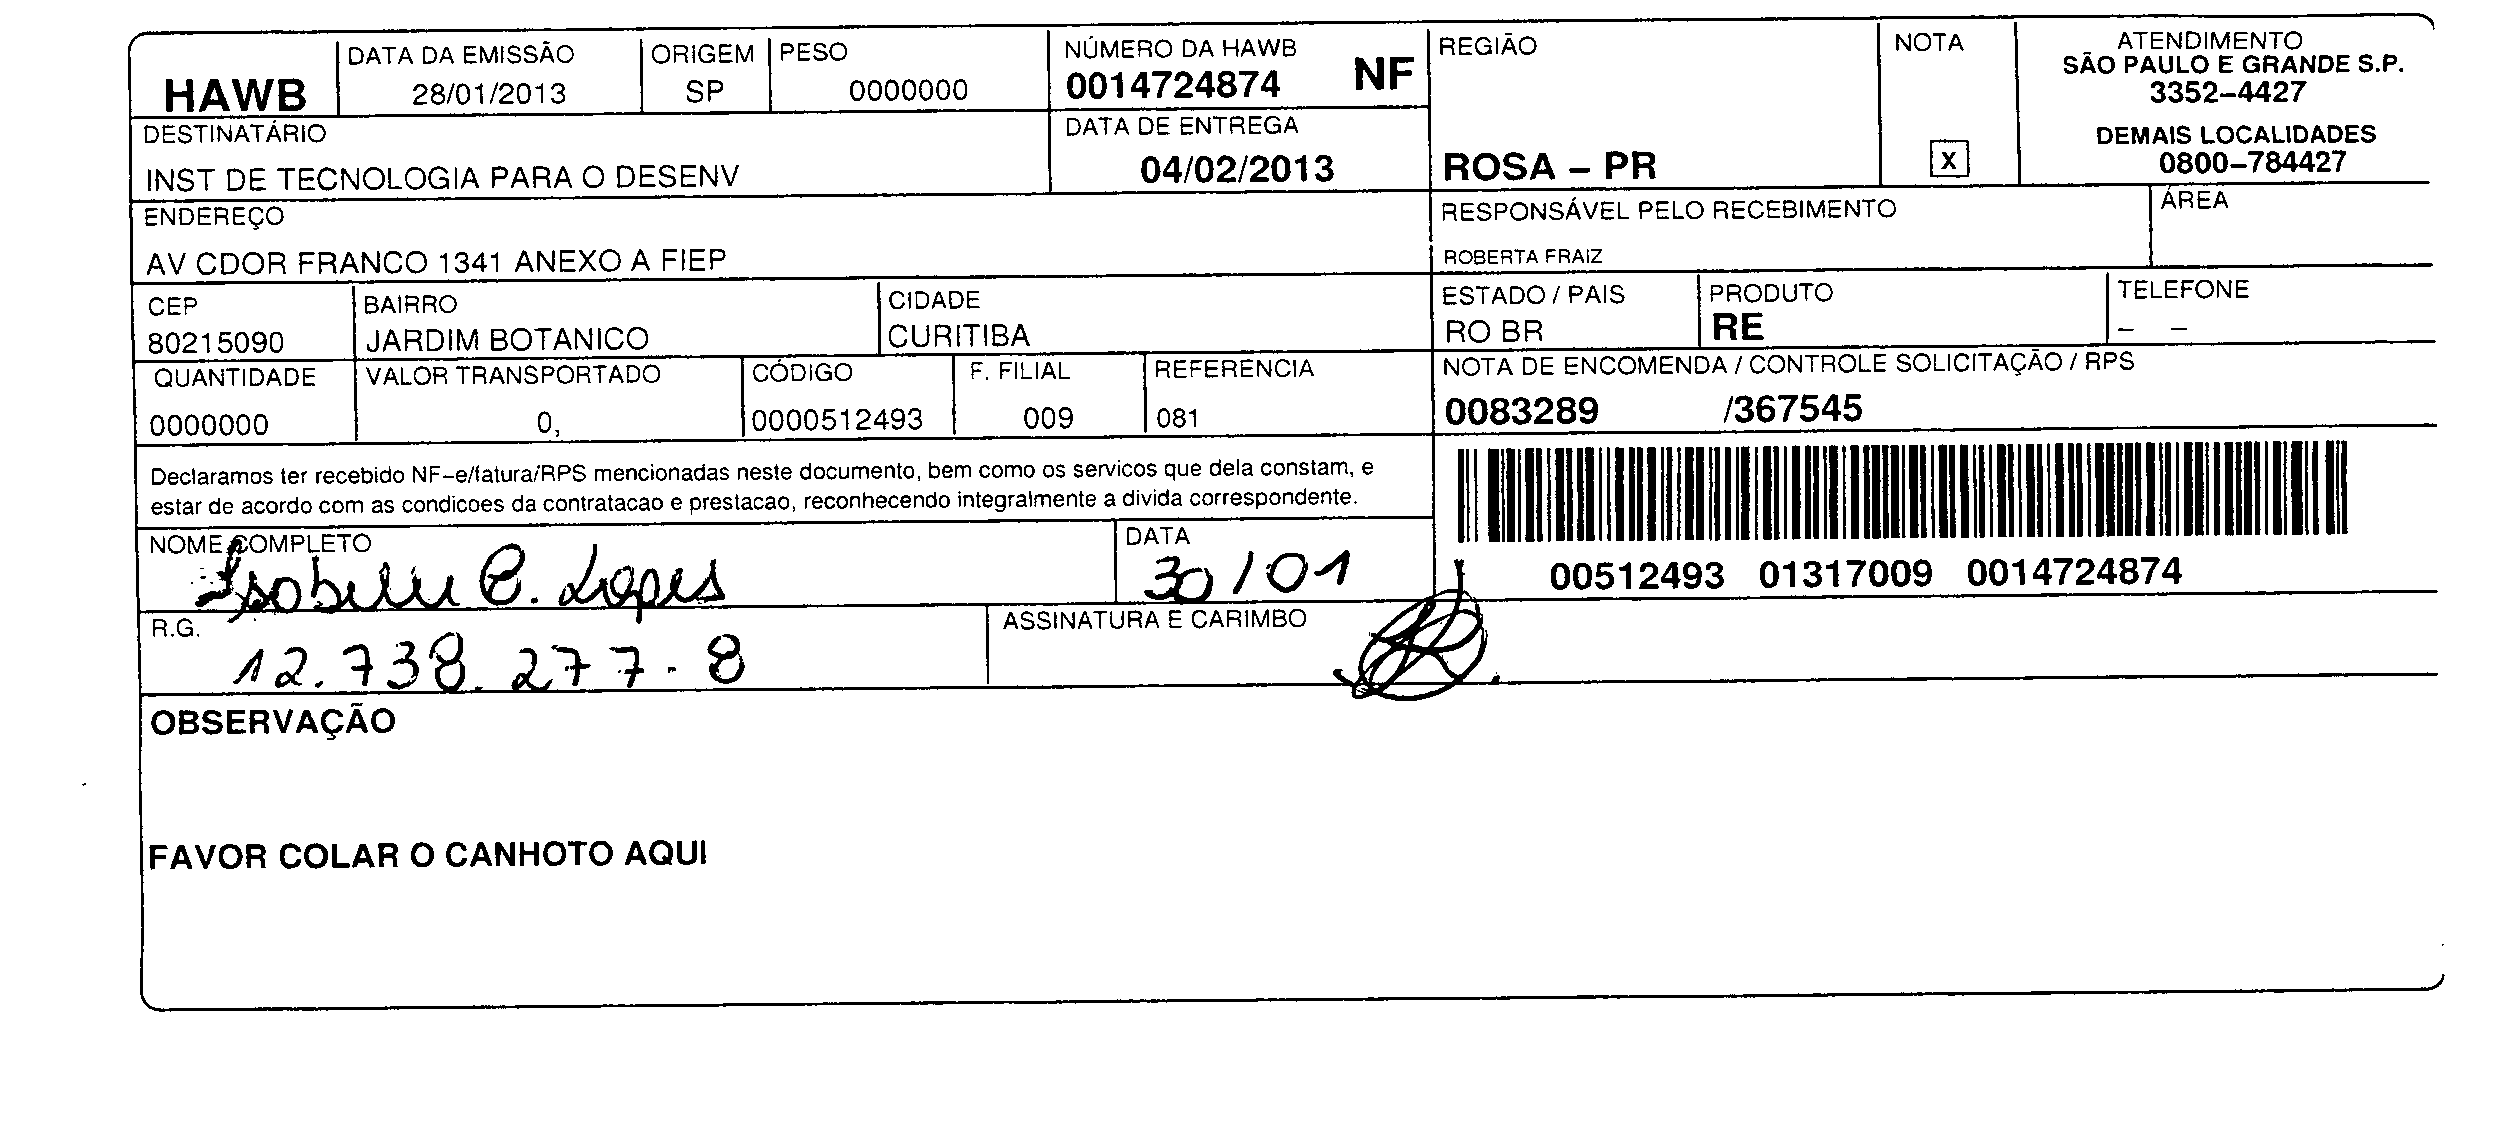 HAWB
DATA DA EMISSÃO
28/01/2013
ORIGEM
SP
PESO
0000000
NÚMERO DA HAWB
0014724874 NF
REGIÃO
ROSA – PR
NOTA
X
ATENDIMENTO
SÃO PAULO E GRANDE S.P.
3352–4427
DEMAIS LOCALIDADES
0800–784427
DESTINATÁRIO
INST DE TECNOLOGIA PARA O DESENV
DATA DE ENTREGA
04/02/2013
ENDEREÇO
AV CDOR FRANCO 1341 ANEXO A FIEP
RESPONSÁVEL PELO RECEBIMENTO
ROBERTA FRAIZ
ÁREA
CEP
80215090
BAIRRO
JARDIM BOTANICO
CIDADE
CURITIBA
ESTADO / PAIS
RO BR
PRODUTO
RE
TELEFONE
– –
QUANTIDADE
0000000
VALOR TRANSPORTADO
0,
CÓDIGO
0000512493
F. FILIAL
009
REFERENCIA
081
NOTA DE ENCOMENDA / CONTROLE SOLICITAÇÃO / RPS
0083289 /367545
Declaramos ter recebido NF–e/fatura/RPS mencionadas neste documento, bem como os servicos que dela constam, e
estar de acordo com as condicoes da contratacao e prestacao, reconhecendo integralmente a divida correspondente.
00512493 01317009 0014724874
NOME COMPLETO
C. Lopes
DATA
30/01
R.G.
12.738.277-8
ASSINATURA E CARIMBO
OBSERVAÇÃO
FAVOR COLAR O CANHOTO AQUI